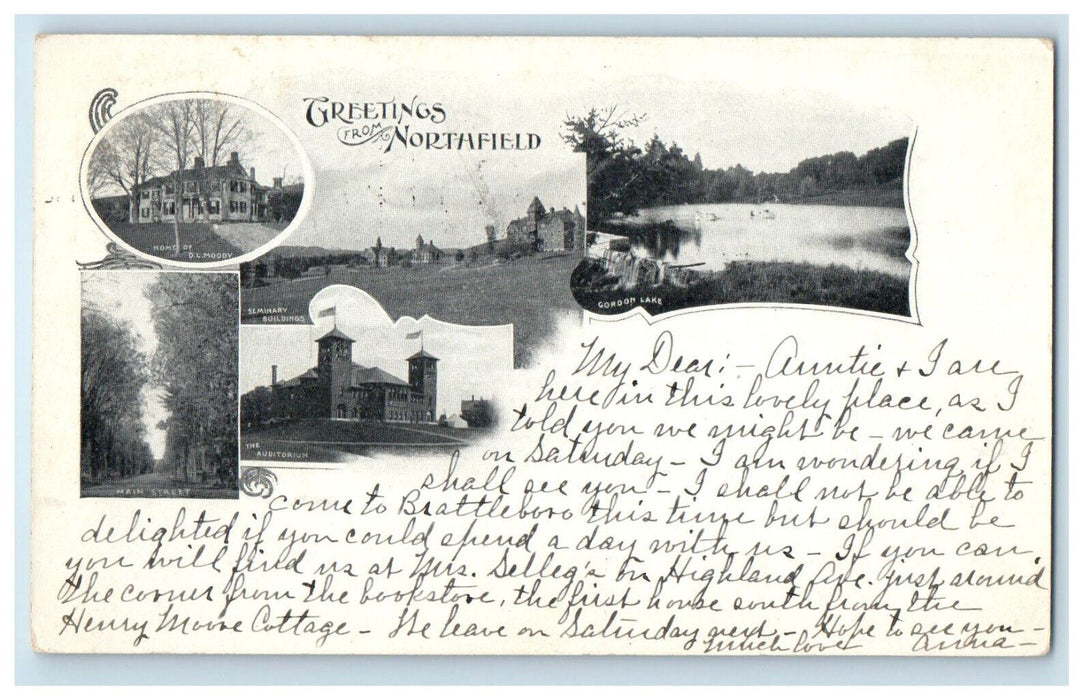 GREETINGS
FROM NORTHFIELD
HOME OF
D.L. MOODY
SEMINARY
BUILDINGS
GORDON LAKE
THE
AUDITORIUM
MAIN STREET
My Dear:- Auntie & I are
here in this lovely place, as I
told you we might be - we came
on Saturday - I am wondering if I
shall see you - I shall not be able to
come to Brattleboro this time but should be
delighted if you could spend a day with us - If you can,
you will find us at Mrs. on Highland Ave. just around
the corner from the bookstore, the first house south from the
Henry Moore Cottage - We leave on Saturday next - Hope to see you -
Much love Anna -